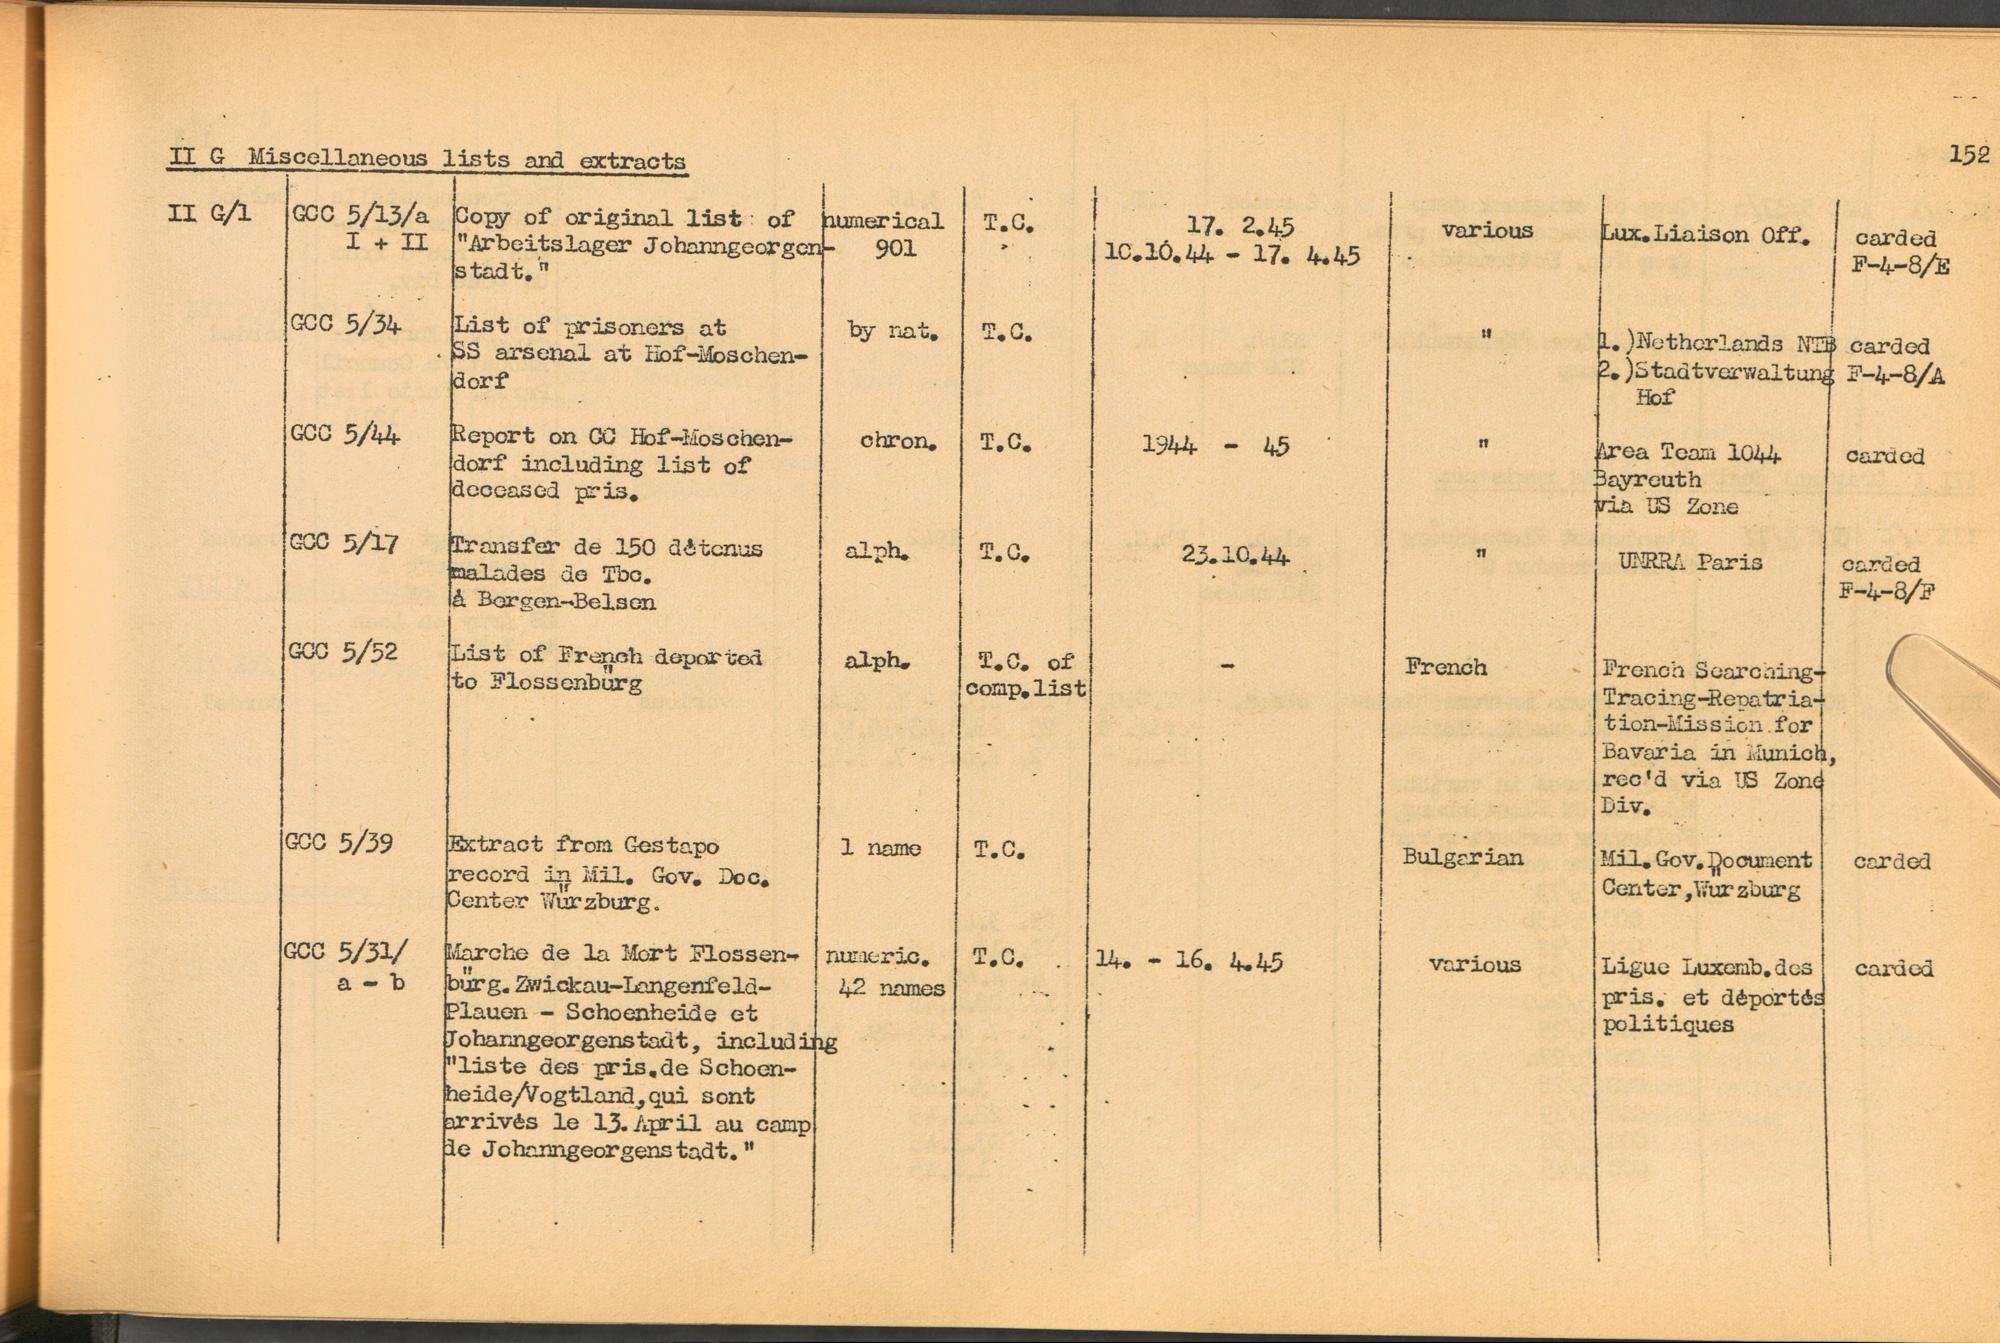 II G Miscellaneous lists and extracts
152
II G/1
GCC 5/13/a
I + II
Copy of original list of
"Arbeitslager Johanngeorgen-
stadt."
numerical
901
T.C.
17. 2.45
10.10.44 - 17. 4.45
various
Lux.Liaison Off.
carded
F-4-8/E
GCC 5/34
List of prisoners at
SS arsenal at Hof-Moschen-
dorf
by nat.
T.C.
"
1.)Netherlands NTB
2.)Stadtverwaltung
Hof
carded
F-4-8/A
GCC 5/44
Report on CC Hof-Moschen-
dorf including list of
deceased pris.
chron.
T.C.
1944 - 45
"
Area Team 1044
Bayreuth
via US Zone
carded
GCC 5/17
Transfer de 150 détenus
malades de Tbc.
à Bergen-Belsen
alph.
T.C.
23.10.44
"
UNRRA Paris
carded
F-4-8/F
GCC 5/52
List of French deported
to Flossenbürg
alph.
T.C. of
comp.list
-
French
French Searching-
Tracing-Repatria-
tion-Mission for
Bavaria in Munich,
rec'd via US Zone
Div.
GCC 5/39
Extract from Gestapo
record in Mil. Gov. Doc.
Center Würzburg.
1 name
T.C.
Bulgarian
Mil.Gov.Document
Center,Würzburg
carded
GCC 5/31/
a - b
Marche de la Mort Flossen-
bürg.Zwickau-Langenfeld-
Plauen - Schoenheide et
Johanngeorgenstadt, including
"liste des pris.de Schoen-
heide/Vogtland,qui sont
arrivés le 13.April au camp
de Johanngeorgenstadt."
numeric.
42 names
T.C.
14. - 16. 4.45
various
Ligue Luxemb.des
pris. et déportés
politiques
carded